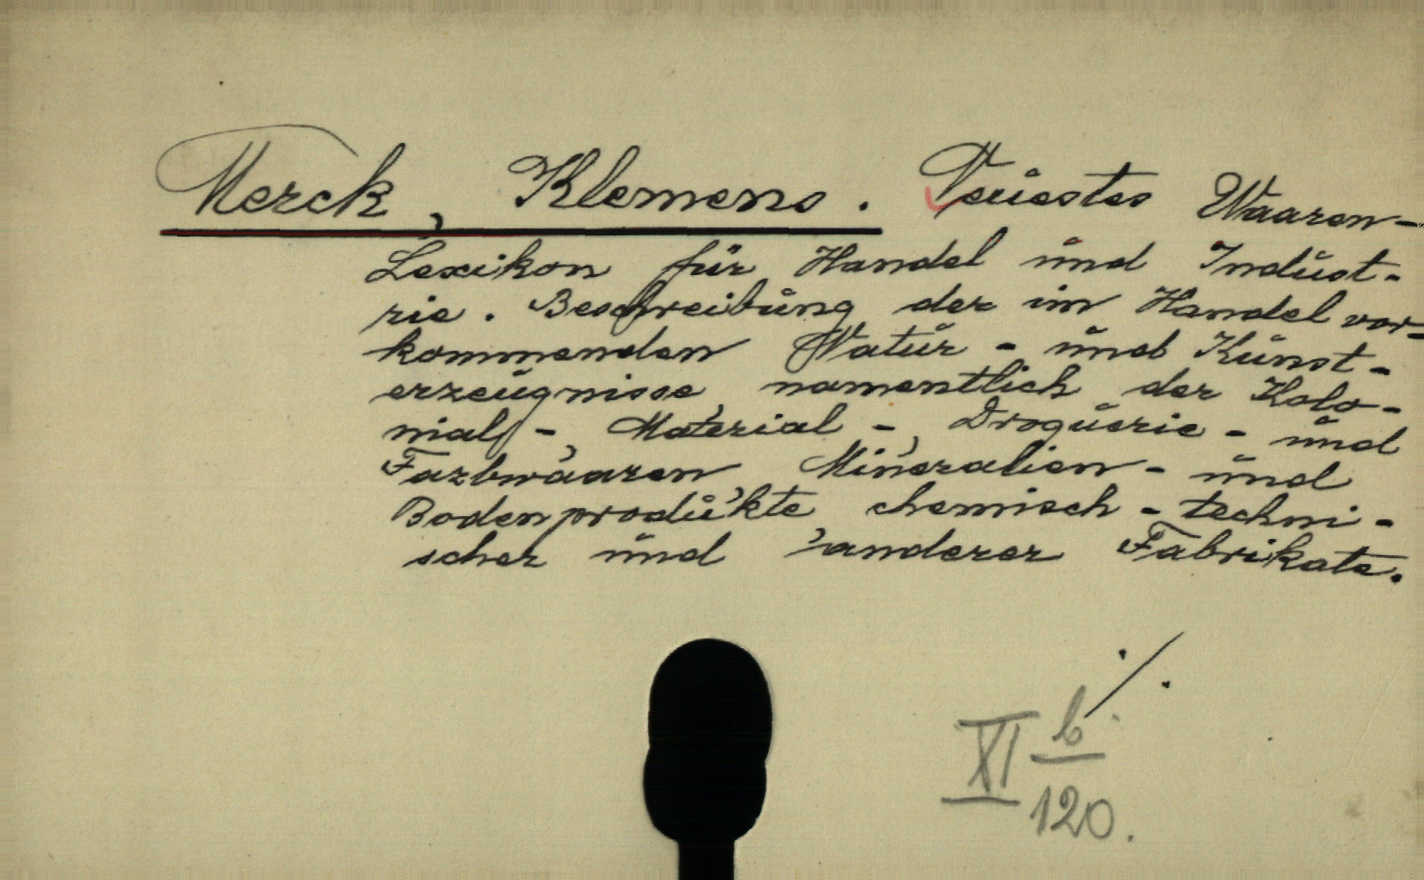 Merck, Klemens. Neuestes Waaren-
Lexikon für Handel und Indust-
rie. Beschreibung der im Handel vor-
kommenden Natur- und Kunst-
erzeugnisse, namentlich der Kolo-
nial-, Material-, Droguerie- und
Farbwaaren, Mineralien- und
Bodenprodukte, chemisch-techni-
scher und anderer Fabrikate.
./.
XI b
120.